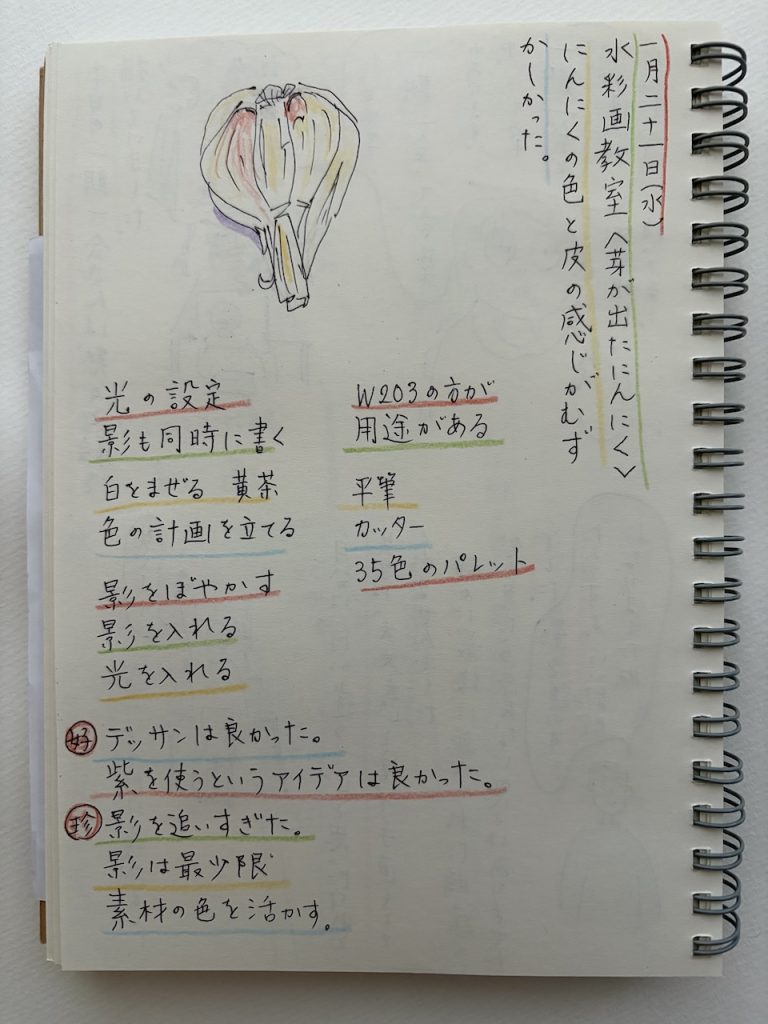 一月二十一日(水)
水彩画教室〈芽が出たにんにく〉
にんにくの色と皮の感じがむず
かしかった。
光の設定
影も同時に書く
白をまぜる 黄茶
色の計画を立てる
影をぼやかす
影を入れる
光を入れる
W203の方が
用途がある
平筆
カッター
35色のパレット
好 デッサンは良かった。
紫を使うというアイデアは良かった。
珍 影を追いすぎた。
影は最少限
素材の色を活かす。